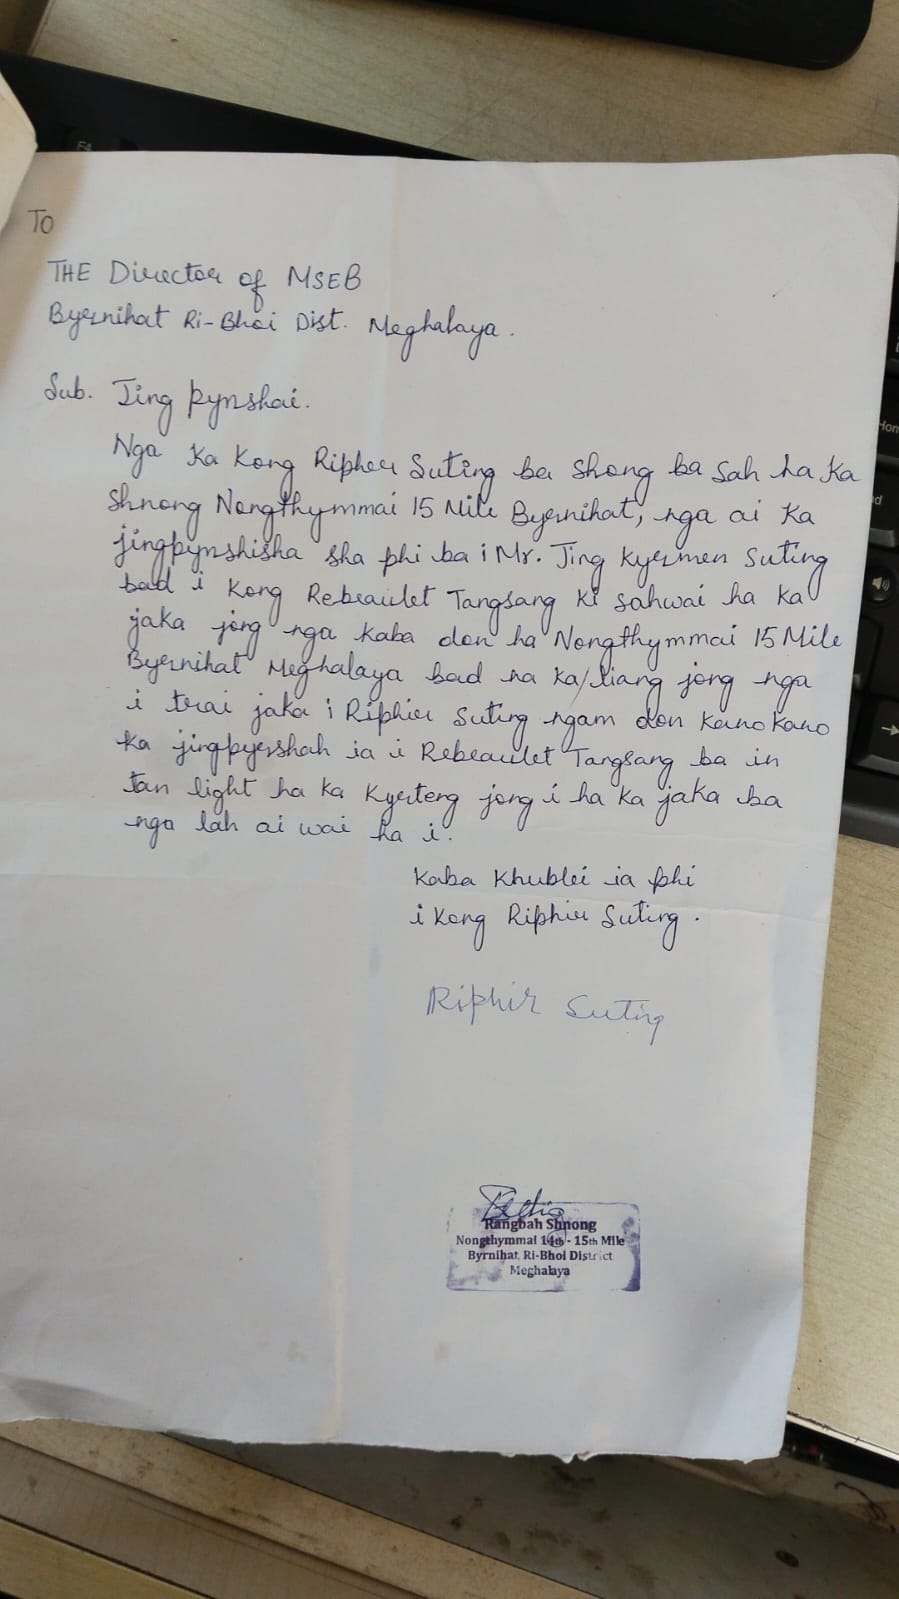 To
THE Director of MSEB
Byernihat Ri-Bhoi Dist. Meghalaya.
Sub. Jing pynshai.
Nga Ka Kong Ripher Suting ba shong ba sah ha Ka
Shnong Nongthymmai 15 Mile Byernihat, nga ai Ka
jingpynshisha sha phi ba i Mr. Jing Kyermen Suting
bad i Kong Rebeaulet Tangsang Ki sahwai ha Ka
jaka jong nga kaba don ha Nongthymmai 15 Mile
Byernihat Meghalaya bad na Ka/liang jong nga
i trai jaka i Riphir Suting ngam don Kano Kano
Ka jingpyershah ia i Rebeaulet Tangsang ba in
tan light ha ka Kyerteng jong i ha ka jaka ba
nga lah ai wai ha i.
Kaba Khublei ia phi
i Kong Riphir Suting.
Riphir Suting
Rangbah Shnong
Nongthymmai 14th - 15th Mile
Byrnihat, Ri-Bhoi District
Meghalaya
F4